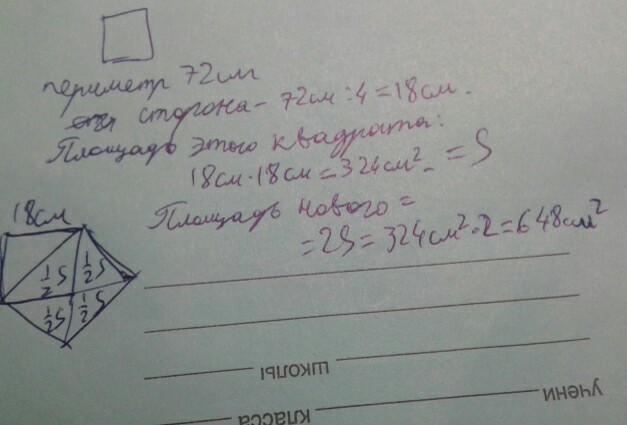 периметр 72см
сторона - 72см : 4 = 18см.
Площадь этого квадрата:
18см · 18см = 324см² = S
Площадь нового =
= 2S = 324см² · 2 = 648см²
18см
½S ½S
½S ½S
школы
учени класса